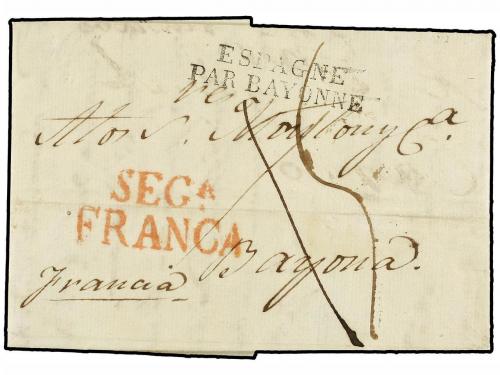 ESPAGNE
PAR BAYONNE
res
A los S. Monthony Cª.
SEGA
FRANCA
Bayona.
Francia